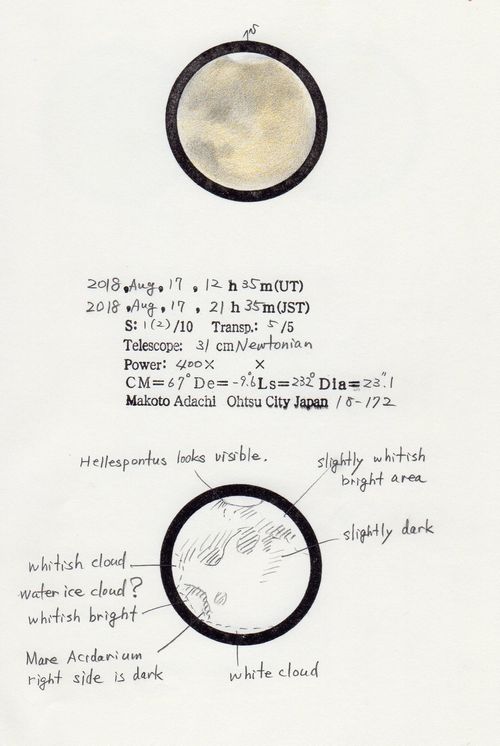 N
2018, Aug, 17, 12 h 35 m (UT)
2018, Aug, 17, 21 h 35 m (JST)
S: 1(2)/10 Transp.: 5/5
Telescope: 31 cm Newtonian
Power: 400× ×
CM=67° De=-9.°6 Ls=232° Dia=23."1
Makoto Adachi Ohtsu City Japan 18-172
Hellespontus looks visible.
slightly whitish
bright area
slightly dark
whitish cloud
water ice cloud?
whitish bright
Mare Acidarium
right side is dark
white cloud